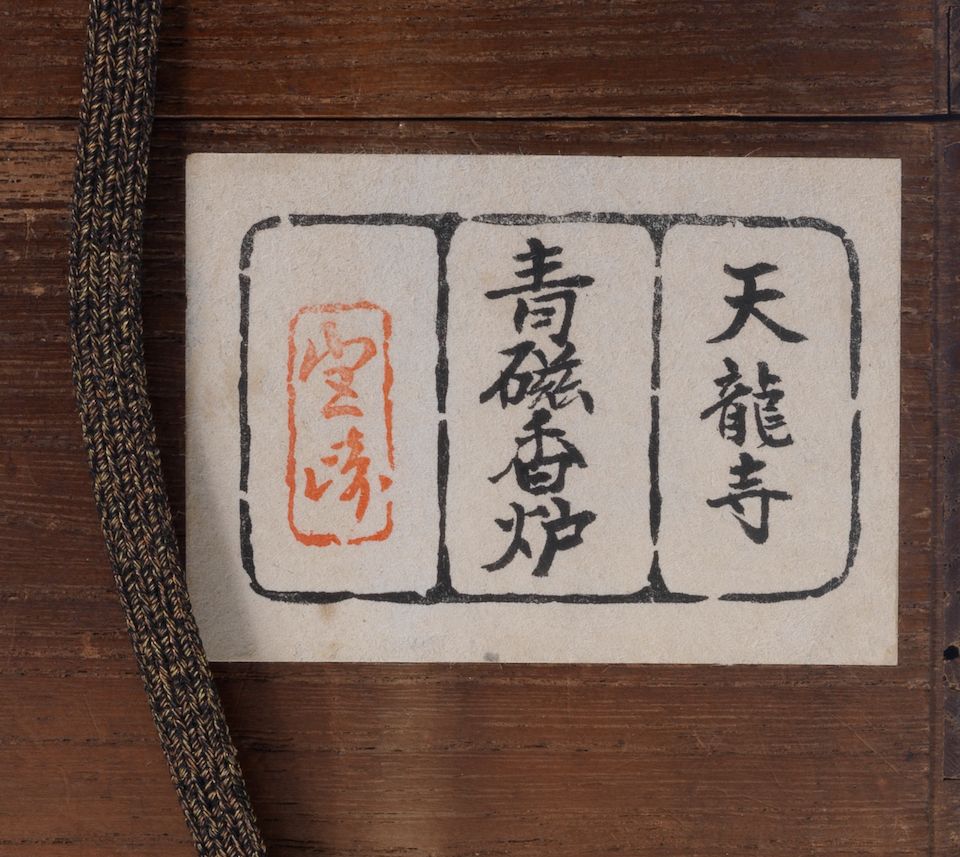 天龍寺
青磁香炉